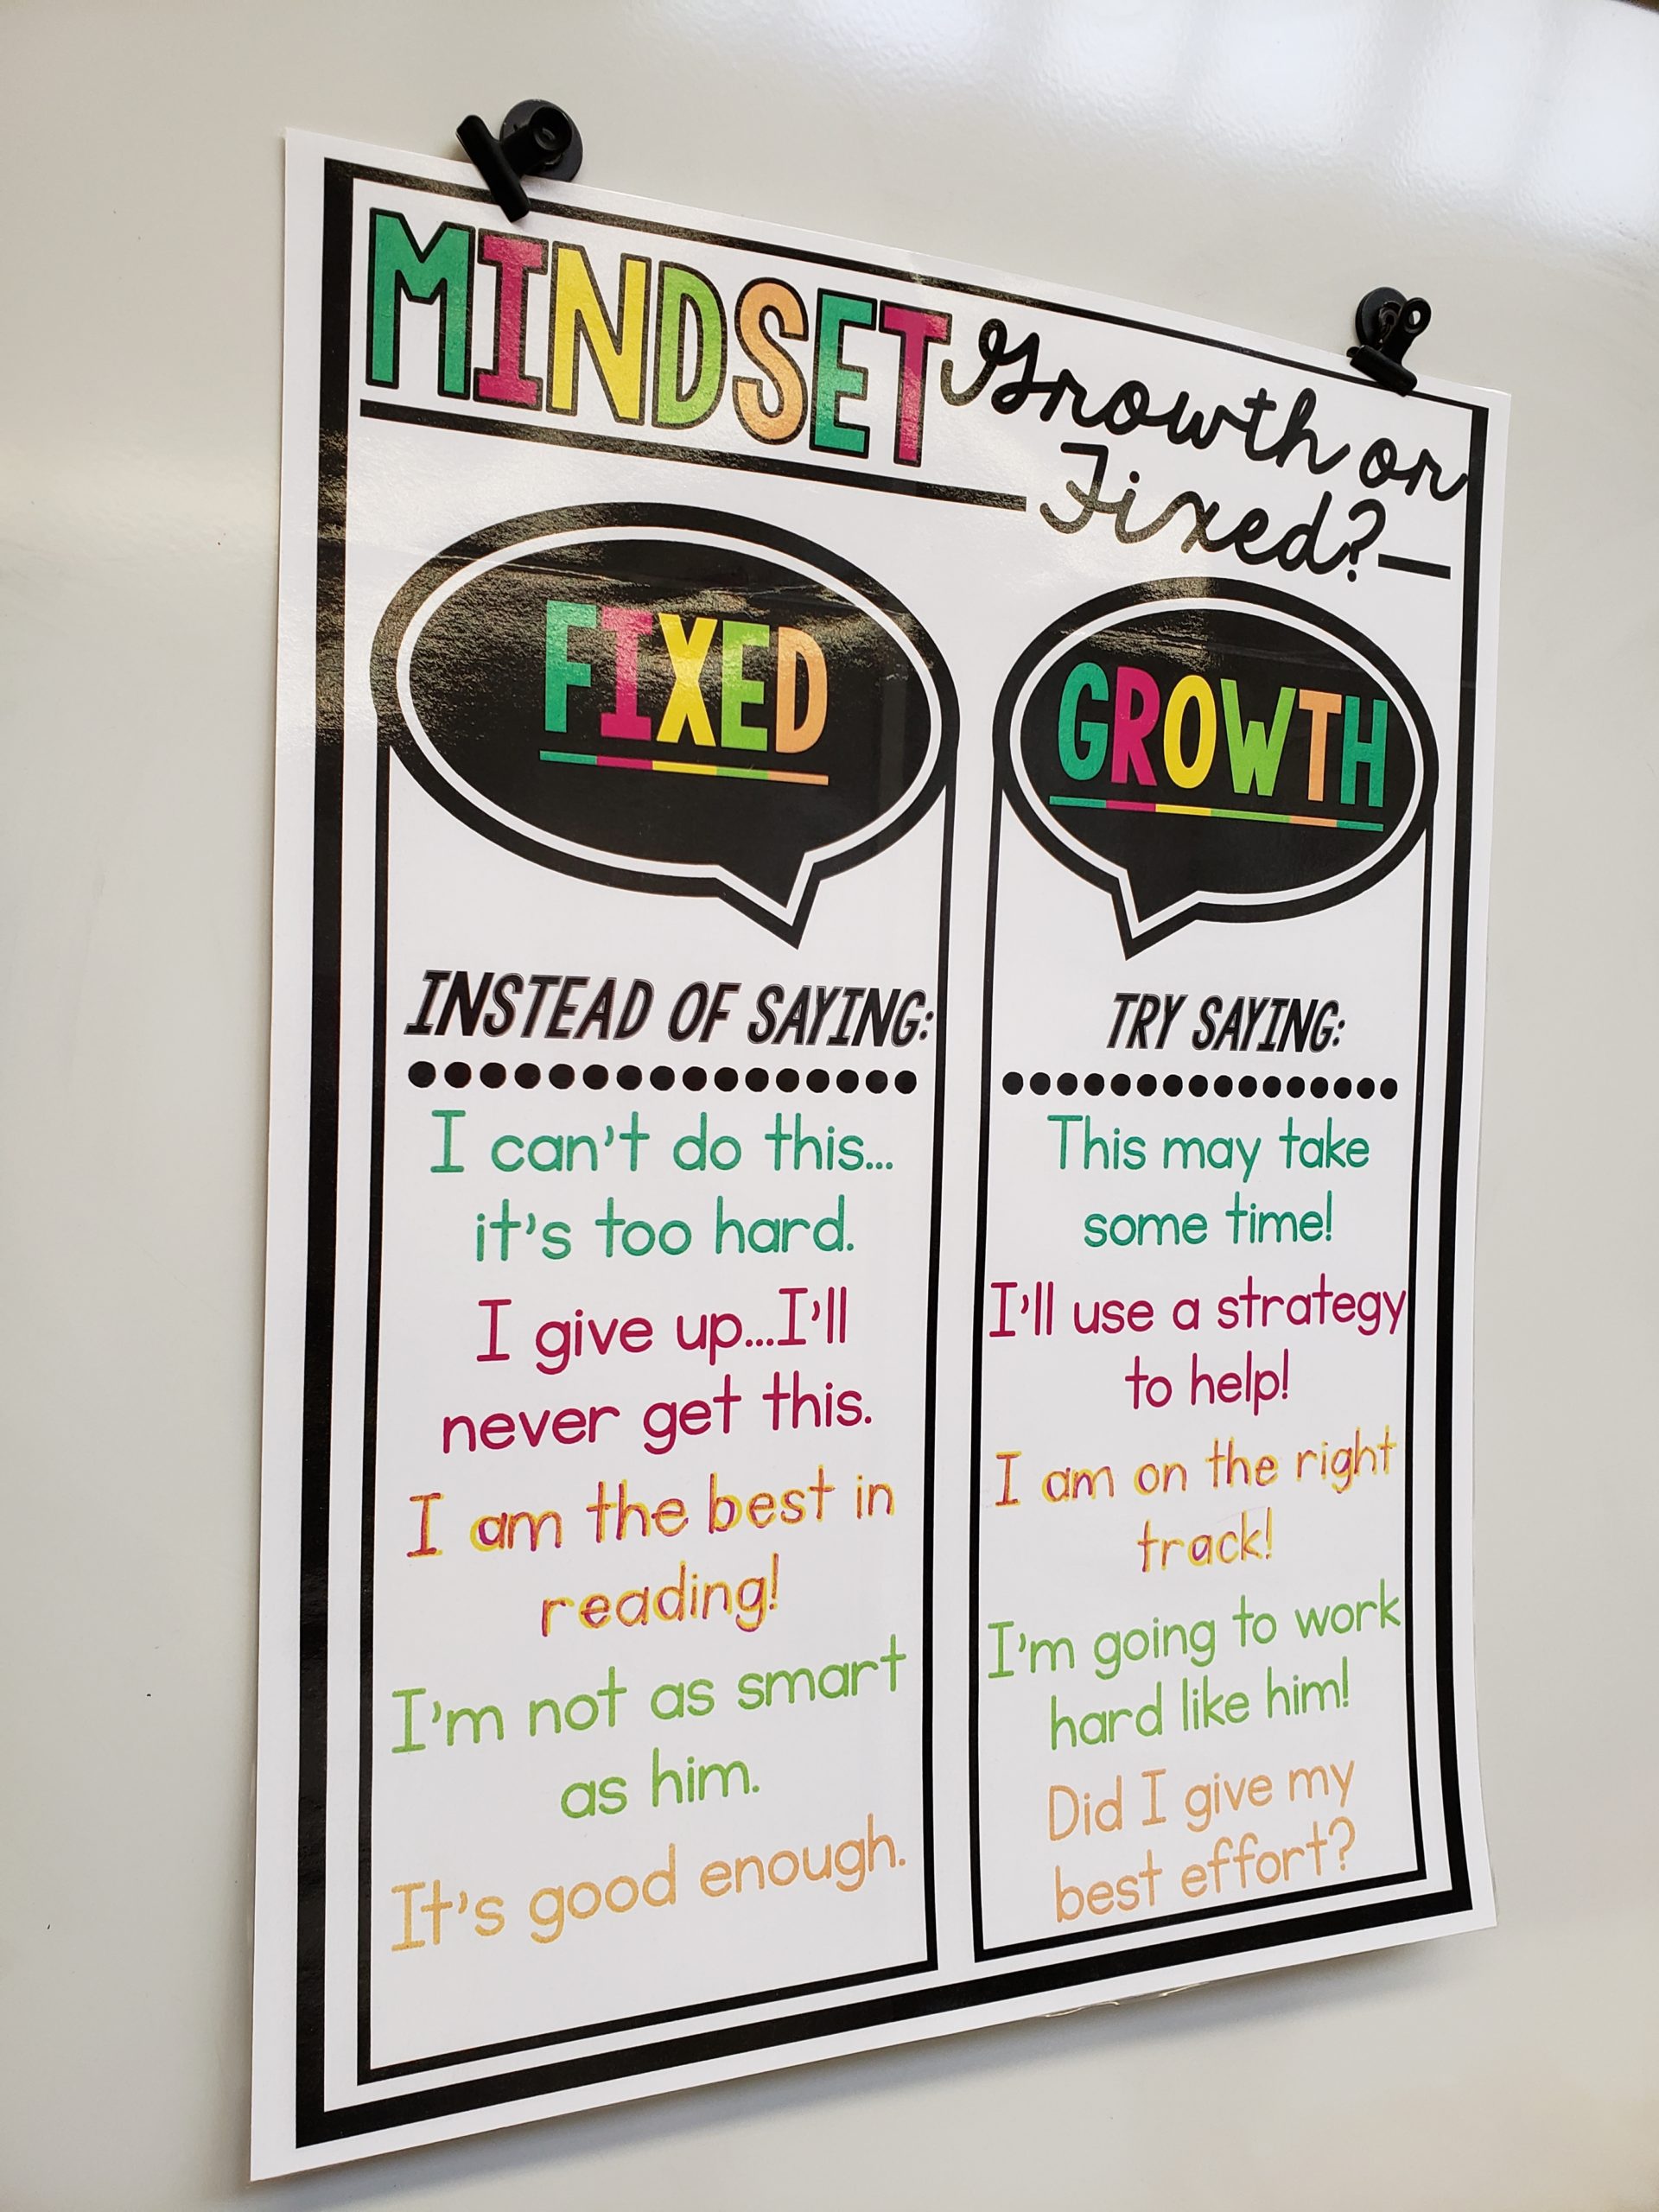 MINDSET Growth or
Fixed?
FIXED
INSTEAD OF SAYING:
I can't do this...
it's too hard.
I give up...I'll
never get this.
I am the best in
reading!
I'm not as smart
as him.
It's good enough.
GROWTH
TRY SAYING:
This may take
some time!
I'll use a strategy
to help!
I am on the right
track!
I'm going to work
hard like him!
Did I give my
best effort?